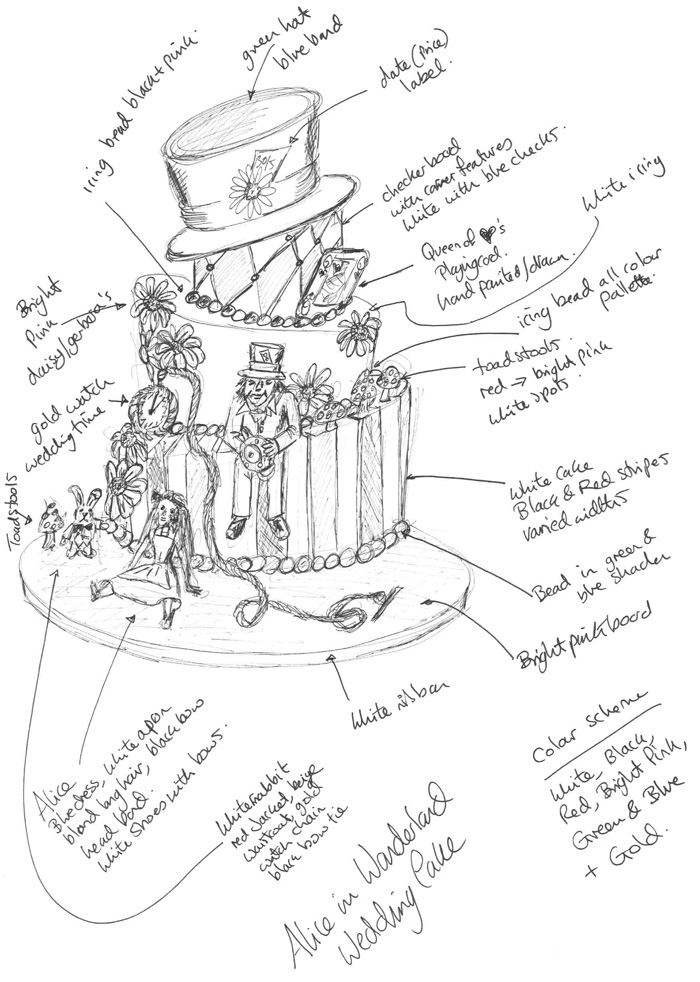 green hat
blue band
date (price)
label.
icing bead black + pink.
checker board
with corner features
white with blue checks.
White icing
Queen of ♥'s
Playing card.
hand painted/drawn.
icing bead all colour
pallette.
Bright
Pink
daisy/gerbera's
toadstools.
red → bright pink
white spots.
gold watch
wedding time
White Cake
Black & Red stripes
varied widths
Toadstools
Bead in green &
blue shades
Bright pink board
White ribbon
Color scheme
White, Black,
Red, Bright Pink,
Green & Blue
+ Gold.
Alice
Blue dress, white apron
blond long hair, black bow
head band.
White shoes with bows.
White rabbit
red jacket, beige
waistcoat, gold
watch chain
black bow tie
Alice in Wonderland
Wedding Cake